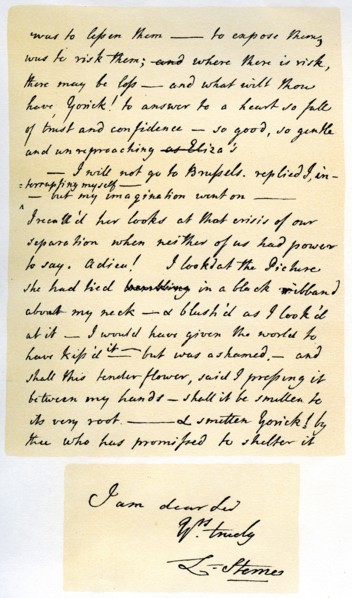 was to lessen them —— to expose them;
was to risk them; and where there is risk,
there may be loss — and what wilt thou
have Yorick! to answer to a heart so full
of trust and confidence — so good, so gentle
and unreproaching as Eliza's
— I will not go to Brussels. replied I, in-
=terrupting myself —
— but my imagination went on ——
I recall'd her looks at that crisis of our
separation when neither of us had power
to say. Adieu! I look'd at the Picture
she had tied in a black ribband
about my neck — & blush'd as I look'd
at it — I would have given the world to
have kiss'd it — but was ashamed. — and
shall this tender flower, said I pressing it
between my hands — shall it be smitten to
its very root. —— & smitten Yorick! by
thee who has promised to shelter it
I am dear Sir
Yrs. truely
L. Sterne